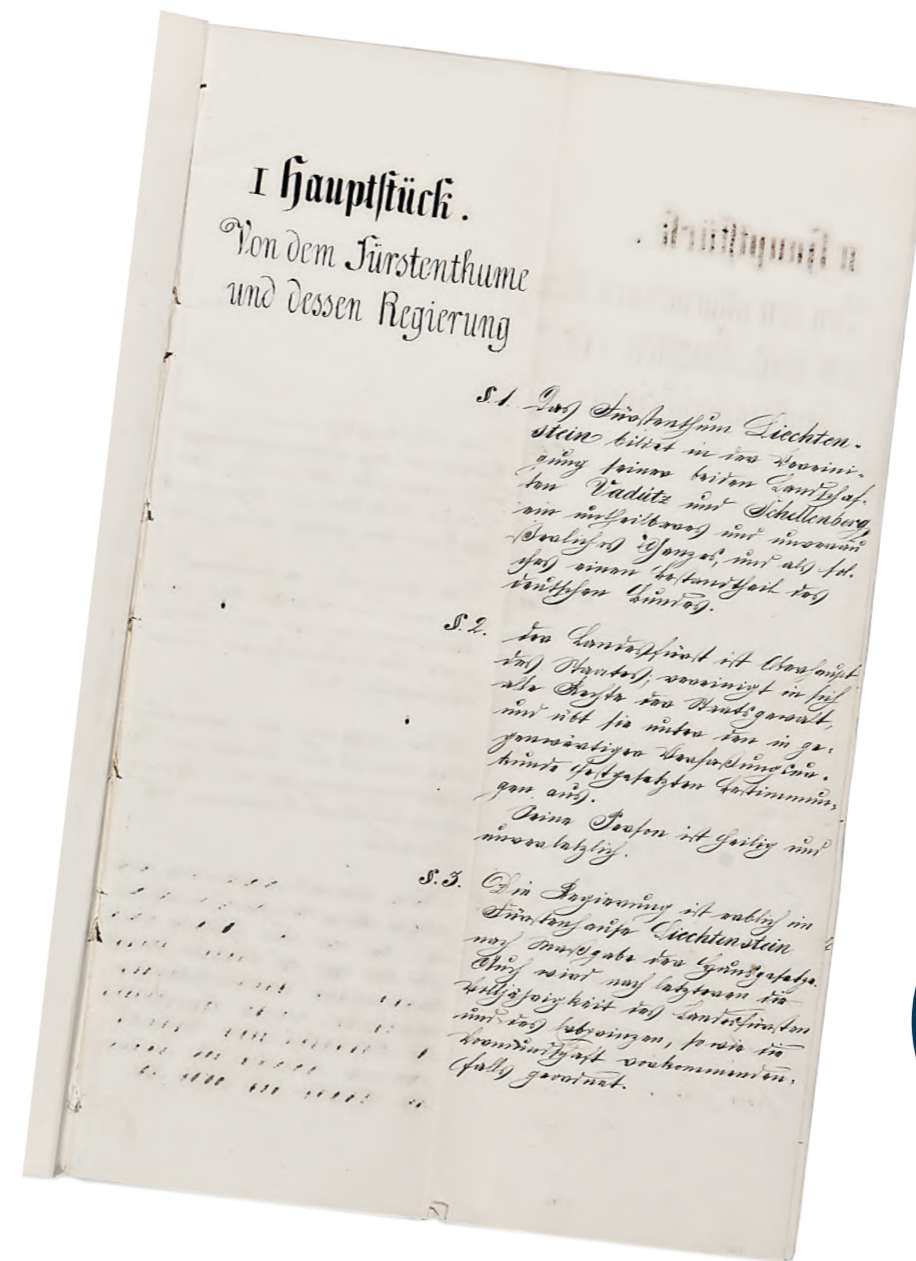 I Hauptstück.
Von dem Fürstenthume
und dessen Regierung
§. 1. Das Fürstenthum Liechten-
stein bildet in der Vereini-
gung seiner beiden Landschaf-
ten Vadutz und Schellenberg
ein untheilbares und unveräu
ßerliches Ganzes, und als sol-
ches einen Bestandtheil des
deutschen Bundes.
§. 2. Der Landesfürst ist Oberhaupt
des Staates, vereinigt in sich
alle Rechte der Staatsgewalt,
und übt sie unter den in ge-
genwärtiger Verfaßungsur-
kunde festgesetzten Bestimmun-
gen aus.
Seine Person ist heilig und
unverletzlich.
§. 3. Die Regierung ist erblich im
Fürstenhause Liechtenstein
nach Maßgabe der Hausgesetze.
Auch wird nach letzteren die
Volljährigkeit des Landesfürsten
und des Erbprinzen, sowie die
Vormundschaft vorkommenden-
falls geordnet.
II Hauptstück.